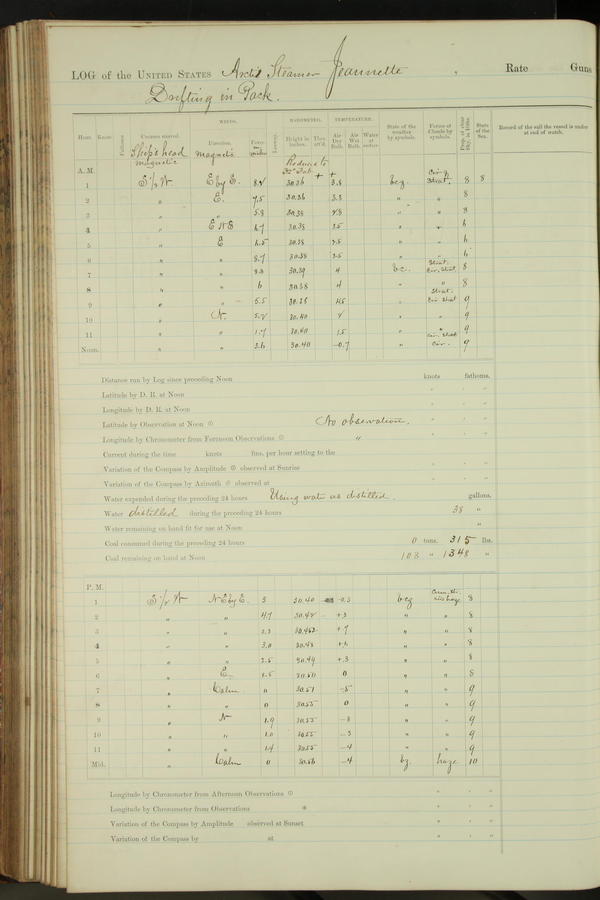 LOG of the UNITED STATES Arctic Steamer Jeannette, Rate Guns
Drifting in Pack.
WINDS. BAROMETER. TEMPERATURE.
Hour. Knots. Fathoms. Courses steered. Direction. Force. Leeway. Height in inches. Ther. att'd. Air Dry Bulb. Air Wet Bulb. Water at surface. State of the weather by symbols. Forms of Clouds by symbols. Prop. of clear Sky, in 10ths. State of the Sea. Record of the sail the vessel is under at end of watch.
Ship's head magnetic magnetic Reduced to 32° Fah. + +
A. M.
1 S ½ W E by E. 30.36 3.5 bcg. Strat. 8 8
2 " E. 7.5 30.36 3.3 " " 8
3 " " 5.8 30.38 " " 8
4 " E N E 6.7 30.38 " " 6
5 " E 6.5 30.38 " " 6
6 " " 8.7 30.38 " " 6
7 " " 30.39 4 bc. Strat. Cir. Strat. 8
8 " " 6 30.38 4 " " 8
9 " " 5.5 " Strat. Cir. Strat 9
10 " N. 30.40 " " 9
11 " " 1.7 30.40 1.5 " Cir. Strat 9
Noon. " " 3.6 30.40 -0.7 " Cir. 9
Distance run by Log since preceding Noon knots fathoms.
Latitude by D. R. at Noon
Longitude by D. R. at Noon
Latitude by Observation at Noon No observation.
Longitude by Chronometer from Forenoon Observations "
Current during the time knots fms. per hour setting to the
Variation of the Compass by Amplitude observed at Sunrise
Variation of the Compass by Azimuth observed at
Water expended during the preceding 24 hours Using water as distilled. gallons.
Water distilled during the preceding 24 hours 38 "
Water remaining on hand fit for use at Noon "
Coal consumed during the preceding 24 hours 0 tons. 315 lbs.
Coal remaining on hand at Noon 103 " 1348 "
P. M.
1 S ½ W N E by E. 3 30.40 -0.3 bcg haze 8
2 " " 4.7 30.42 +.3 " " 8
3 " " 30.462 +.7 " " 8
4 " " 3.0 30.48 " " 8
5 " " 2.5 30.49 +.3 " " 8
6 " E. 0 " " 8
7 " Calm 0 30.51 " " 9
8 " " 0 30.55 0 " " 9
9 " N 1.9 30.55 " " 9
10 " " 1.0 30.55 -3 " " 9
11 " " 1.4 30.55 -4 " " 9
Mid. " Calm 0 30.56 -4 bg. haze 10
Longitude by Chronometer from Afternoon Observations
Longitude by Chronometer from Observations *
Variation of the Compass by Amplitude observed at Sunset
Variation of the Compass by at